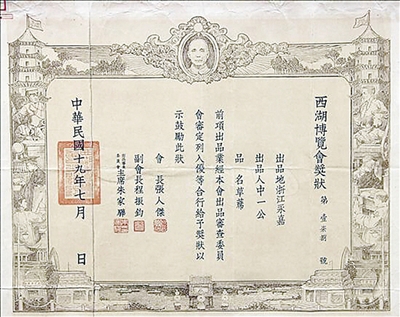 西湖博覽會獎狀
第 壹柒捌 號
出品地浙江永嘉
出品人中一公
品名草蓆
前項出品業經本會出品審查委員
會審定列入優等合行給予獎狀以
示鼓勵此狀
會長張人傑
副會長程振鈞
主席朱家驊
中華民國十九年七月 日